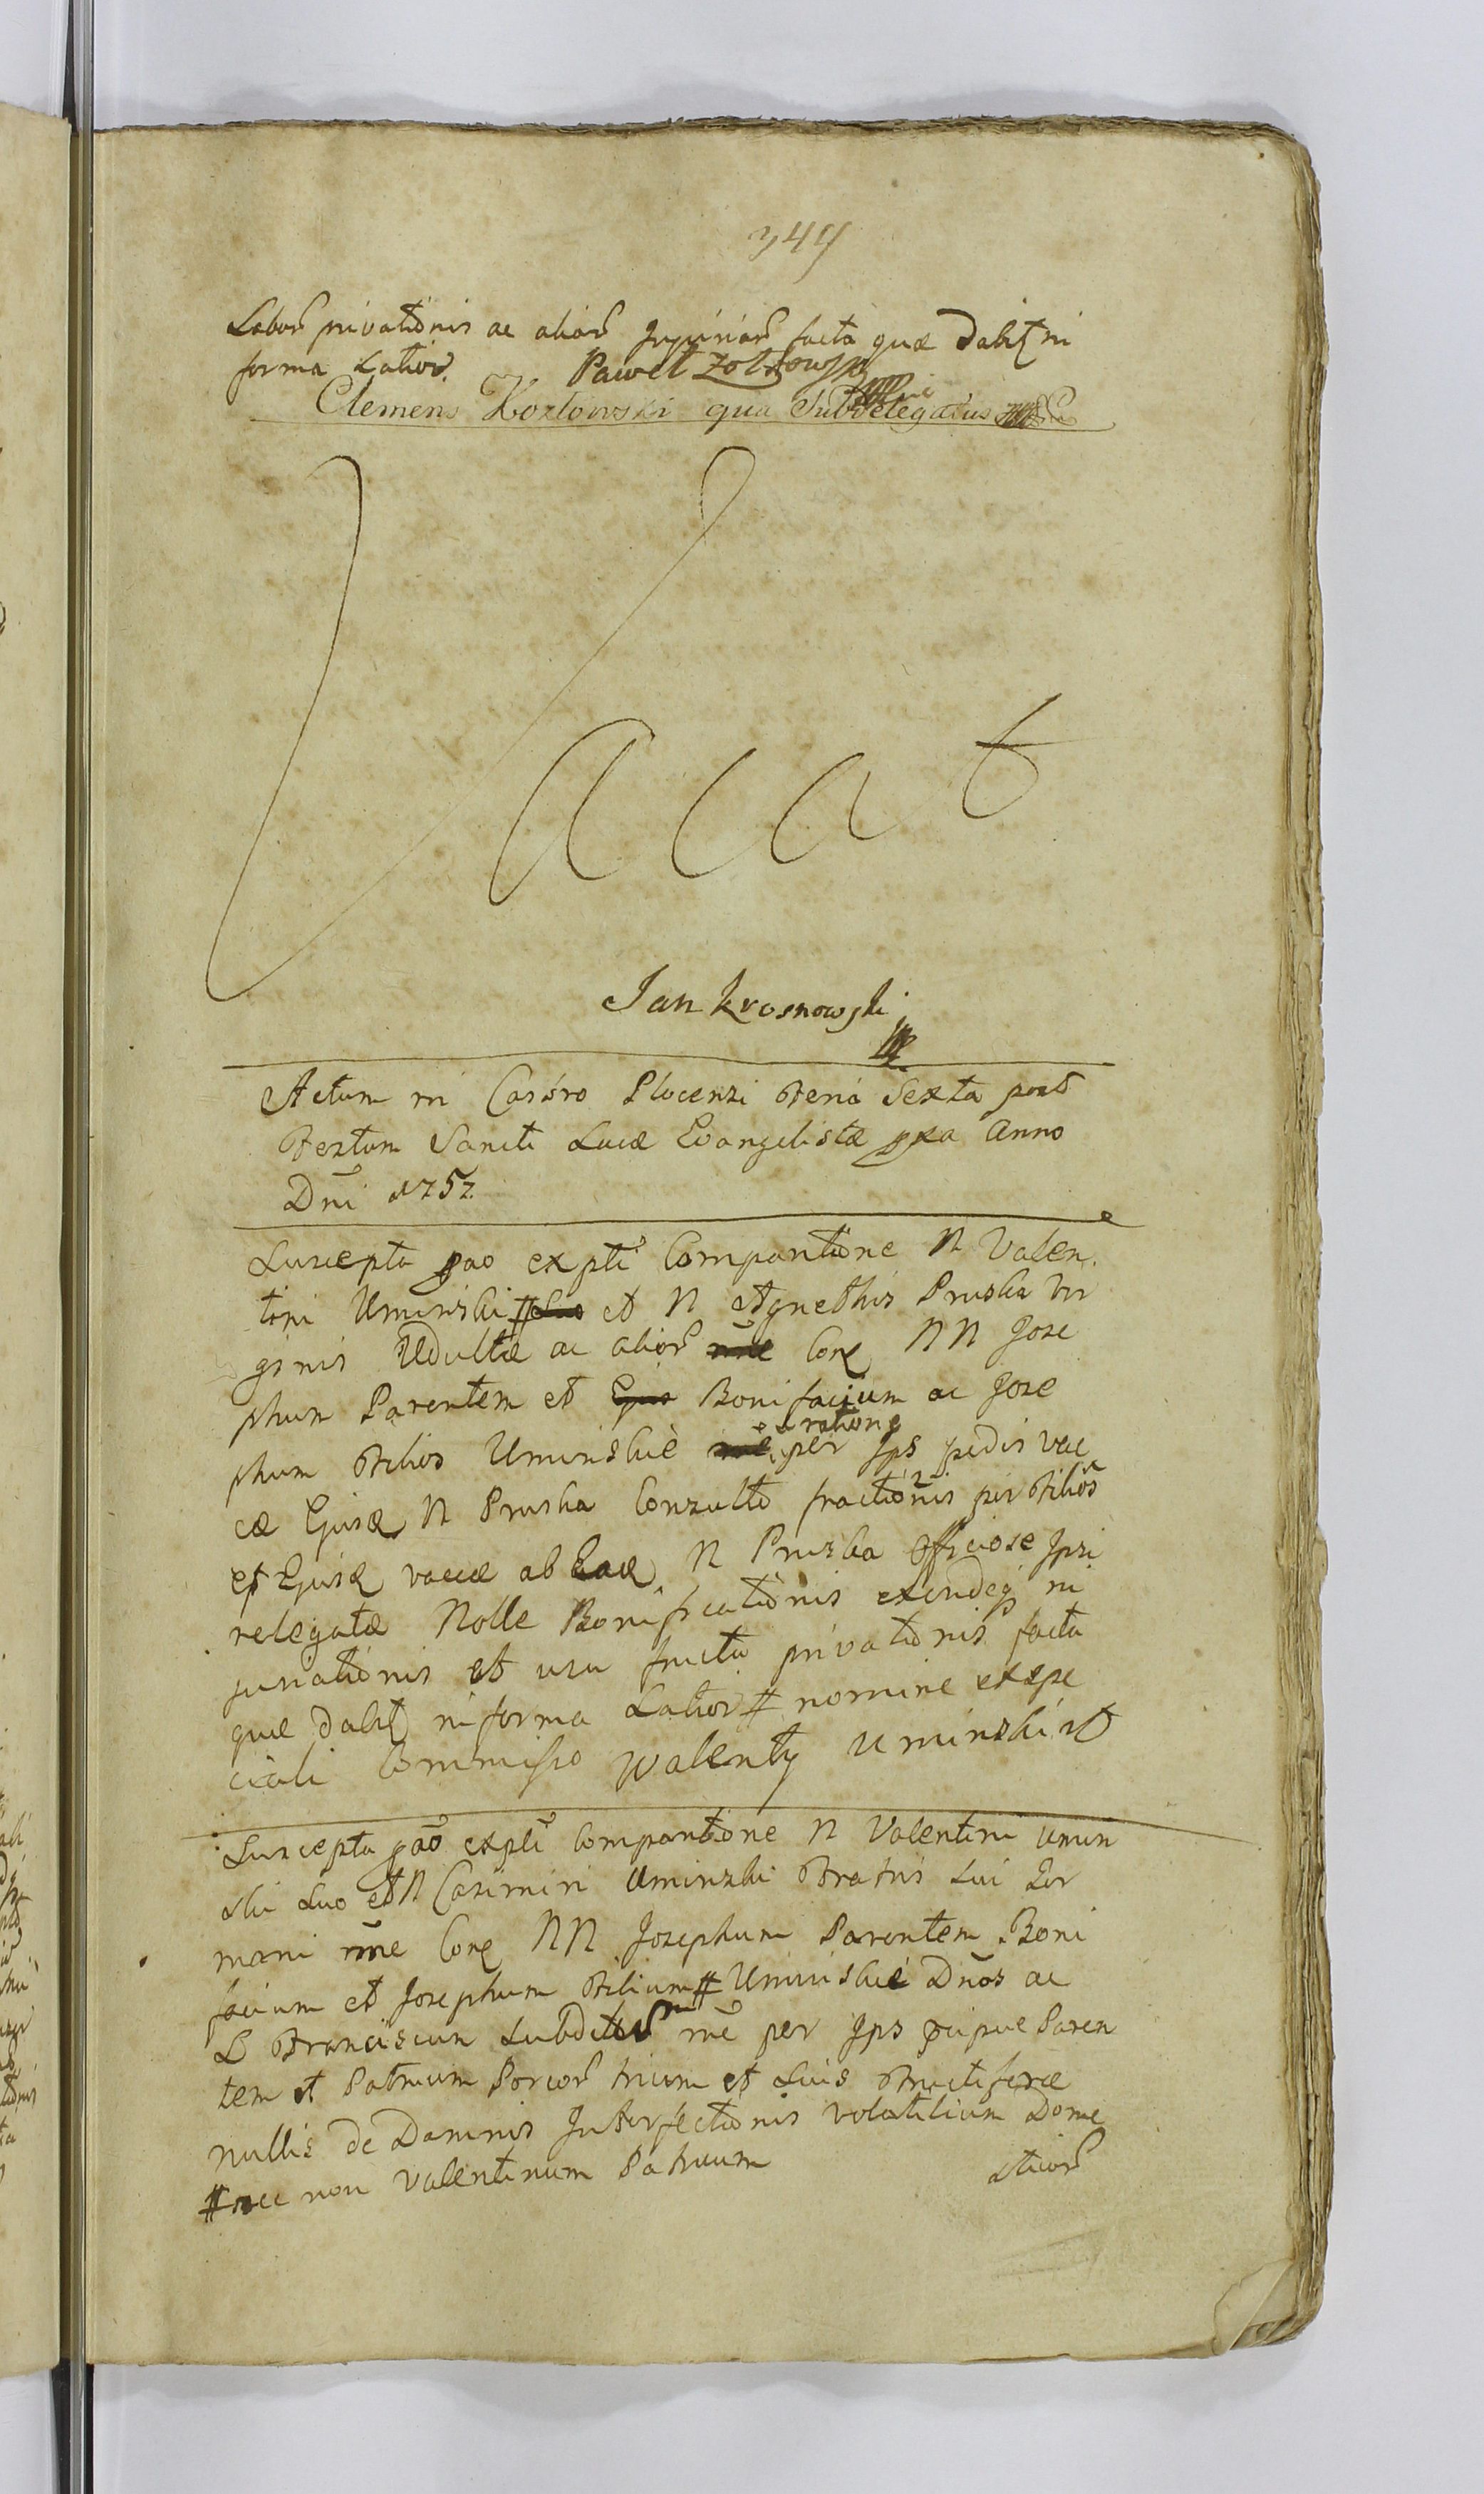 349
Labor privationis ac alior Injuriar facta quæ dabit in
forma Latior. Paweł Zołtowsk
Clemens Kozłowski qua Subdelegatus
Vacat
Jan Krosnowski
Actum in Castro Plocensi Feria Sexta post
Festum Sancti Lucæ Evangelistæ pxa Anno
Dñi 1757.
Suscepta pao expti Comparitione N Valen
tini Uminski # et N Agnethis Pruska Vir
ginis Adultæ ac alior Conq NN Jose
phum Parentem et Bonifacium ac Jose
phum Filios Uminskie ratione per Ips pedis vac
cæ Ejusq N Pruska Consulto fractionis per Filios
et Ejusq vaccæ ab Eaq N Pruska Officiose Ipsi
relegatæ Nolle Bonificationis exindeq in
juriationis et usu fructu privationis facta
quæ dabit in forma Latior # nomine et spe
ciali Commisso Walenty Uminski
Suscepta pao expti Comparitione N Valentini Umin
ski Suo et N Casimiri Uminski Fratris Sui Ger
mani nne Conq NN Josephum Parentem Boni
facium et Josephum Filium # Uminskie Dnos ac
L Franciscum Subditum rne per Ips pcipue Paren
tem et Patruum Porcor trium et Suis Fructiferæ
nullis de Damnis Interfectionis volatilium Dome
sticor
# nec non Valentinum Patruum